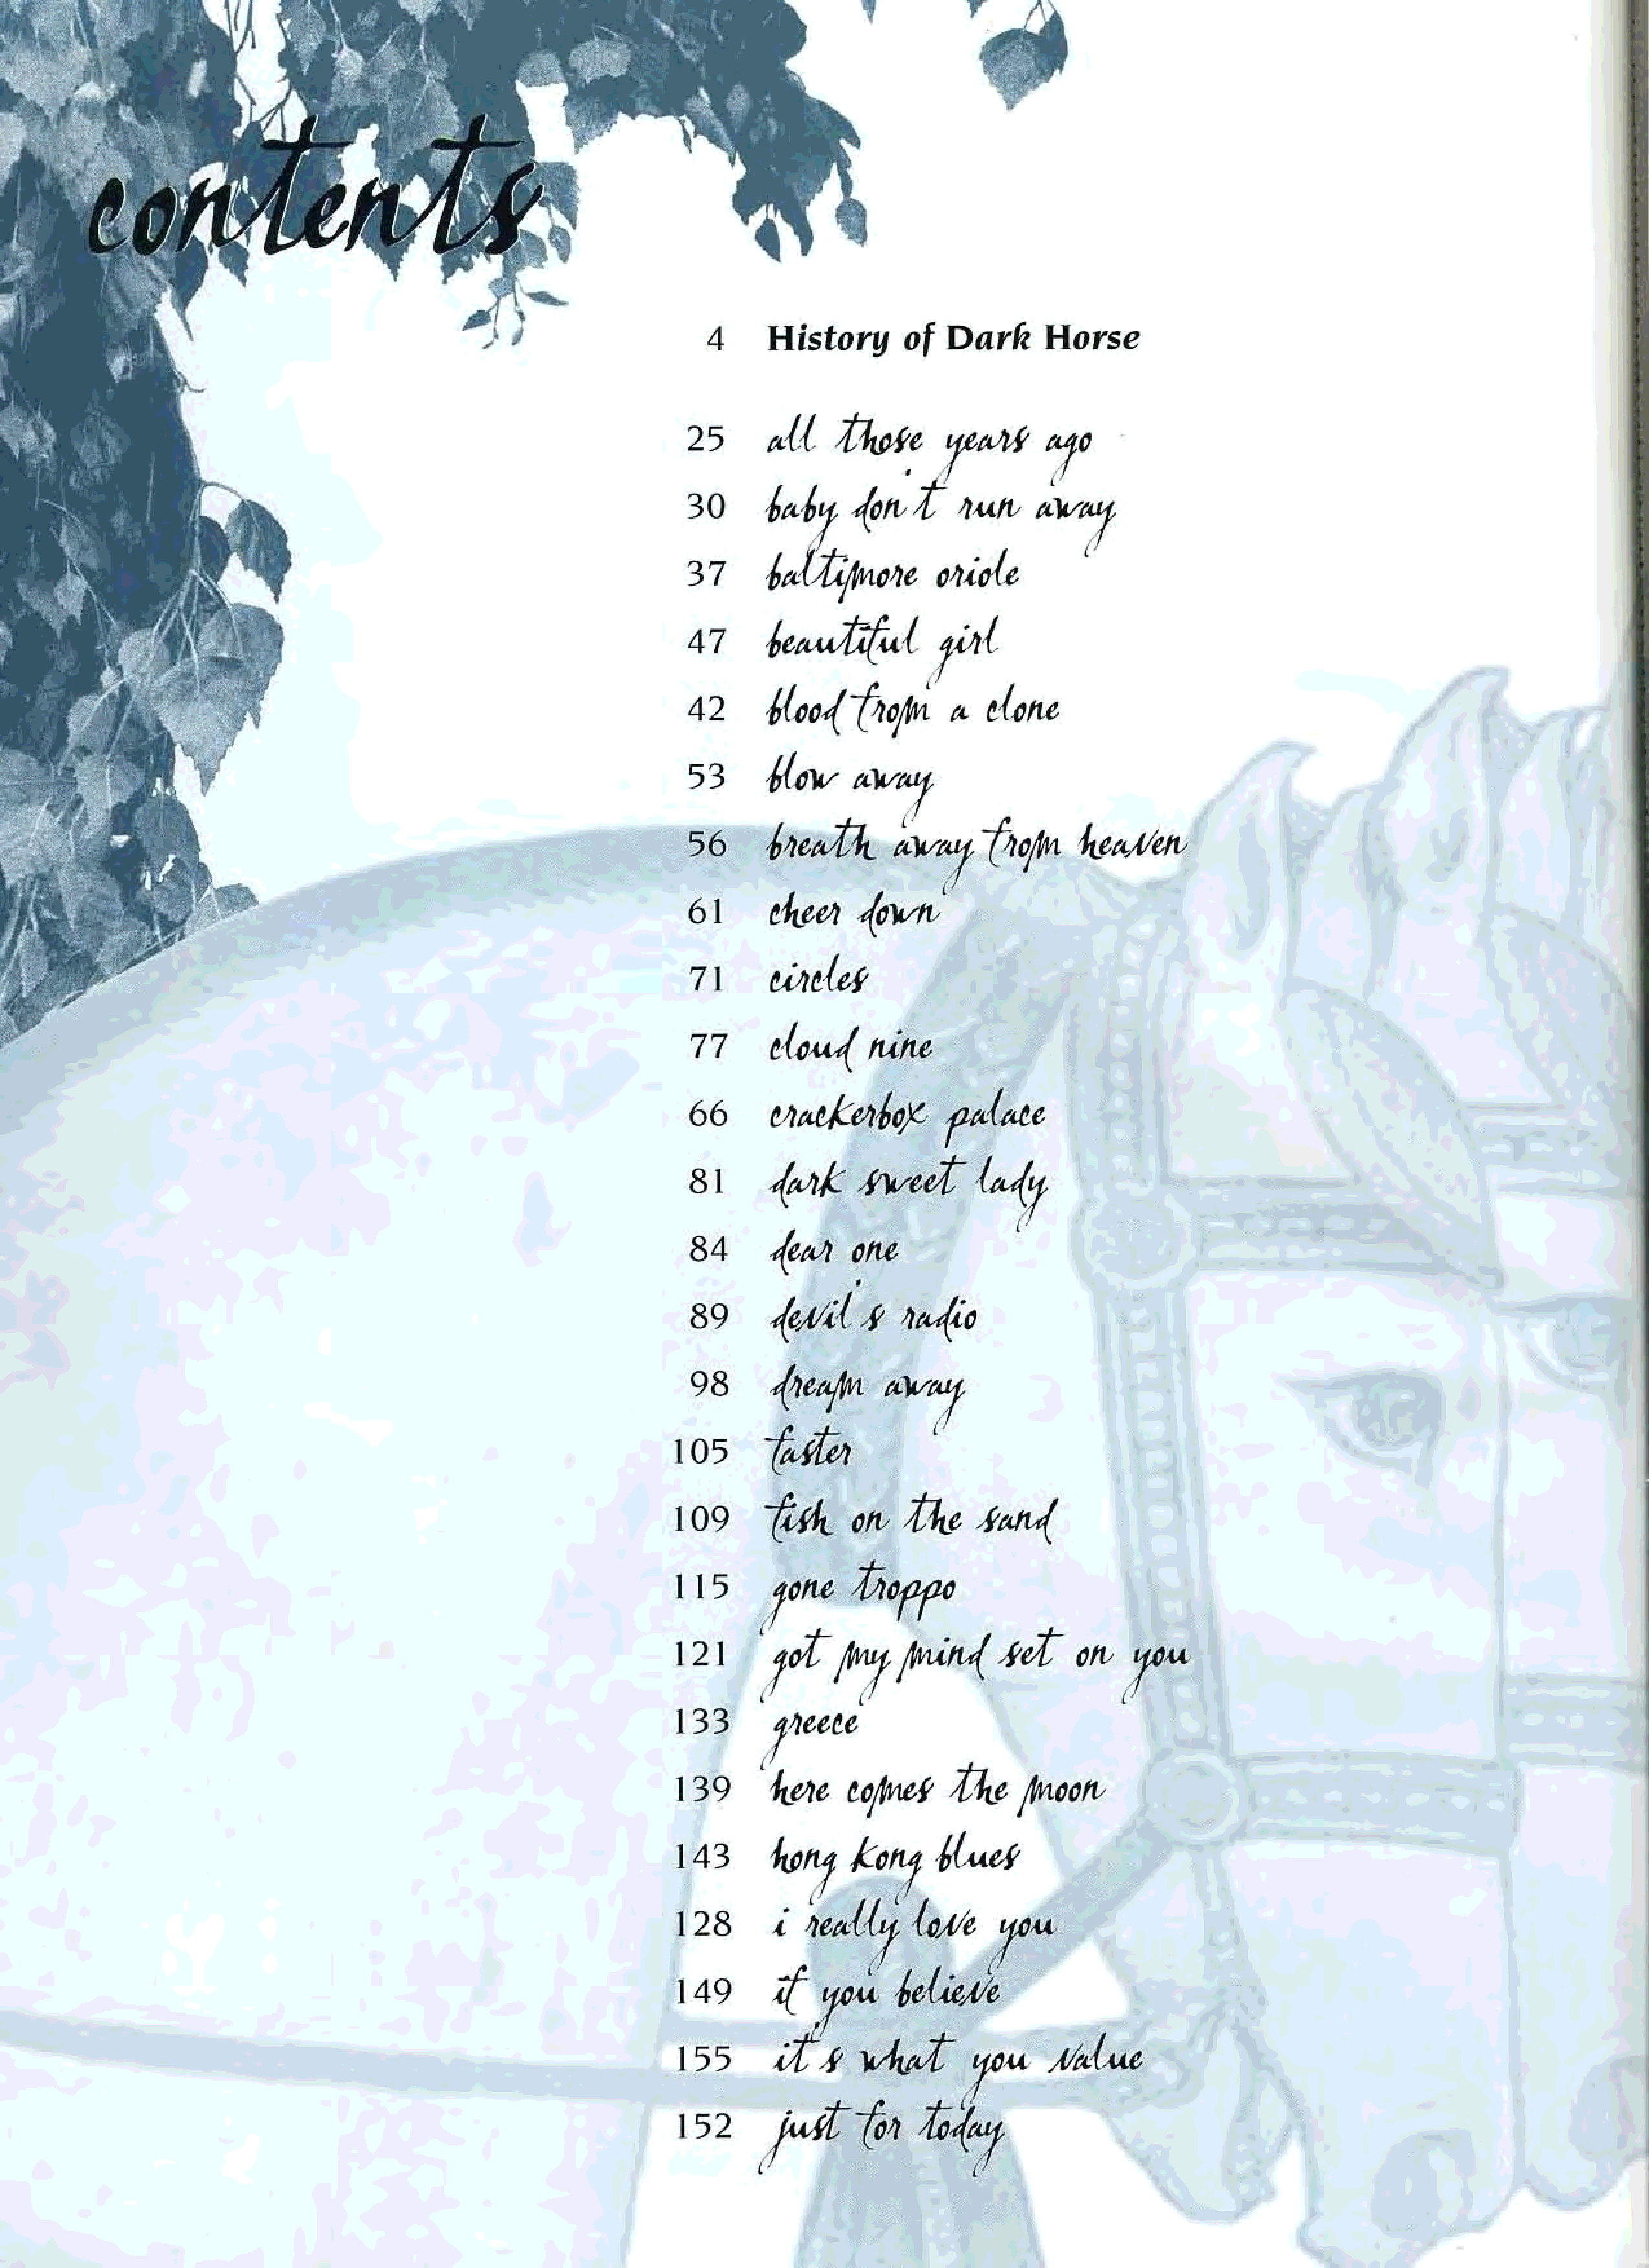 contents
4 History of Dark Horse
25 all those years ago
30 baby don't run away
37 baltimore oriole
47 beautiful girl
42 blood from a clone
53 blow away
56 breath away from heaven
61 cheer down
71 circles
77 cloud nine
66 crackerbox palace
81 dark sweet lady
84 dear one
89 devil's radio
98 dream away
105 faster
109 fish on the sand
115 gone troppo
121 got my mind set on you
133 greece
139 here comes the moon
143 hong kong blues
128 i really love you
149 if you believe
155 it's what you value
152 just for today